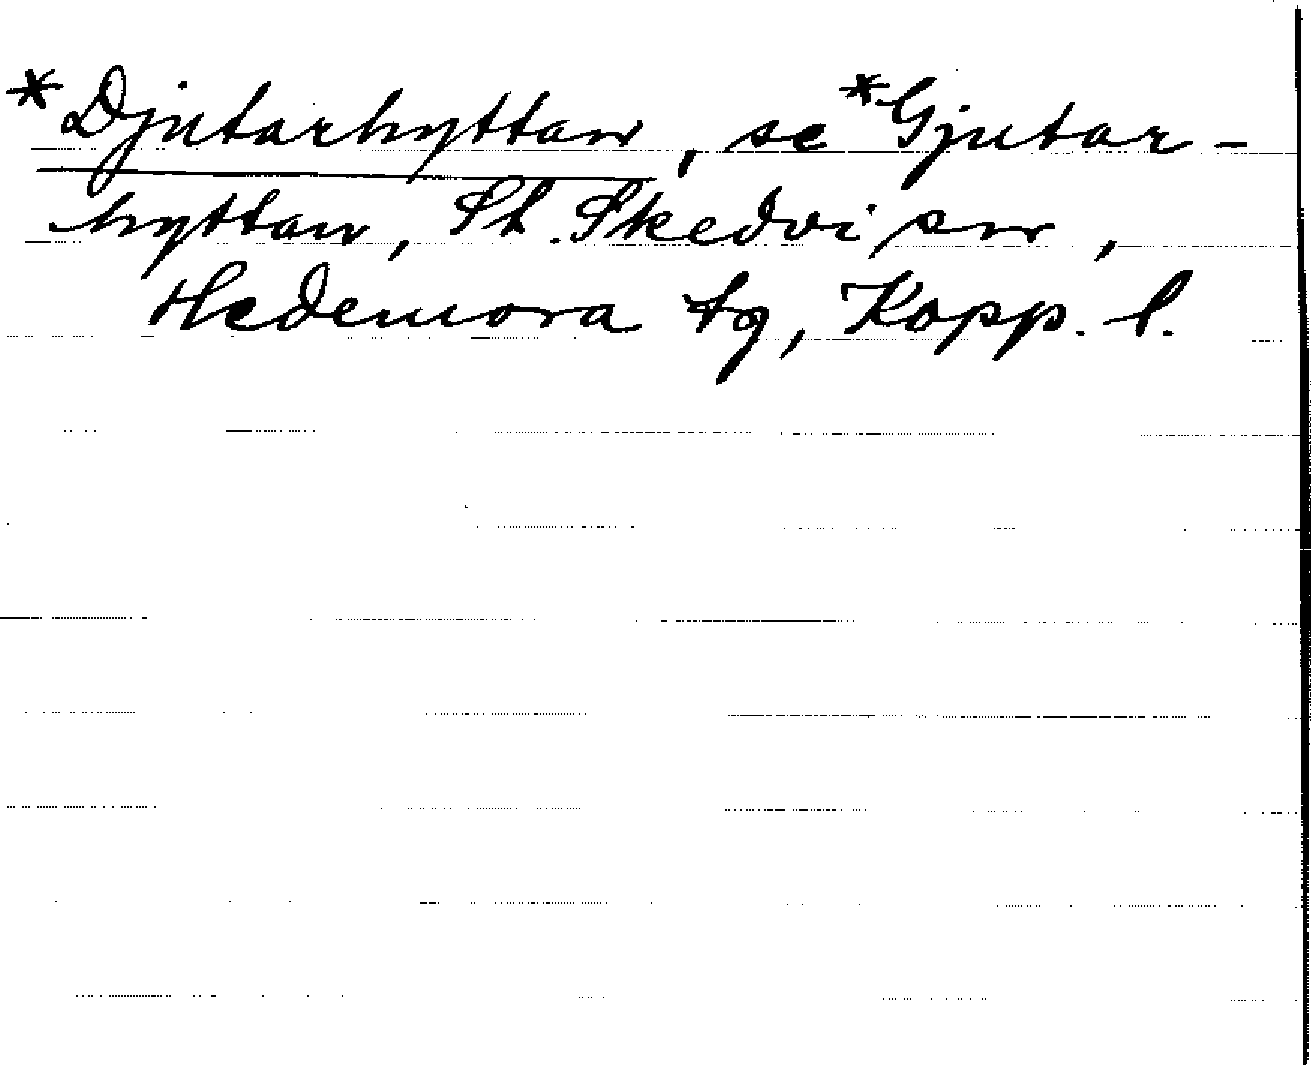 *Djutarhyttan, se *Gjutar-
hyttan, St. Skedvi sn,
Hedemora tg, Kopp. l.